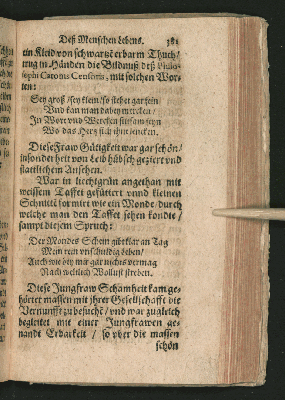 Deß Menschen Lebens. 381
ein Kleid von schwartz erbarm Thuch /
trug in Händen die Bildnuß deß Philo-
sophi Catonis Censoris, mit solchen Wor-
ten:
Sey groß / sey klein / so stehet gar fein
Und kan man dabey mercken /
In Wort und Wercken sittsam seyn
Wo das Hertz sich thut lencken.
Diese Fraw Gütigkeit war gar schön /
insonderheit von Leib hübsch geziert vnd
stattlichem Ansehen.
War in liechtgrün angethan mit
weissem Taffet gefüttert vnnd kleinen
Schnitt formirt wie ein Monde / durch
welche man den Taffet sehen kondte /
sampt diesem Spruch:
Der Mondes Schein gibt klar an Tag
Mein rein unschuldig Leben /
Auch wie bey mir gar nichts vermag
Nach weltlich Wollust streben.
Diese Jungfraw Schamheit kam ge-
hörter massen mit jhrer Gesellschafft die
Vernunfft zu besuchē / vnd war zugleich
begleitet mit einer Jungfrawen ge-
nandt Erbarkeit / so vber die massen
schön